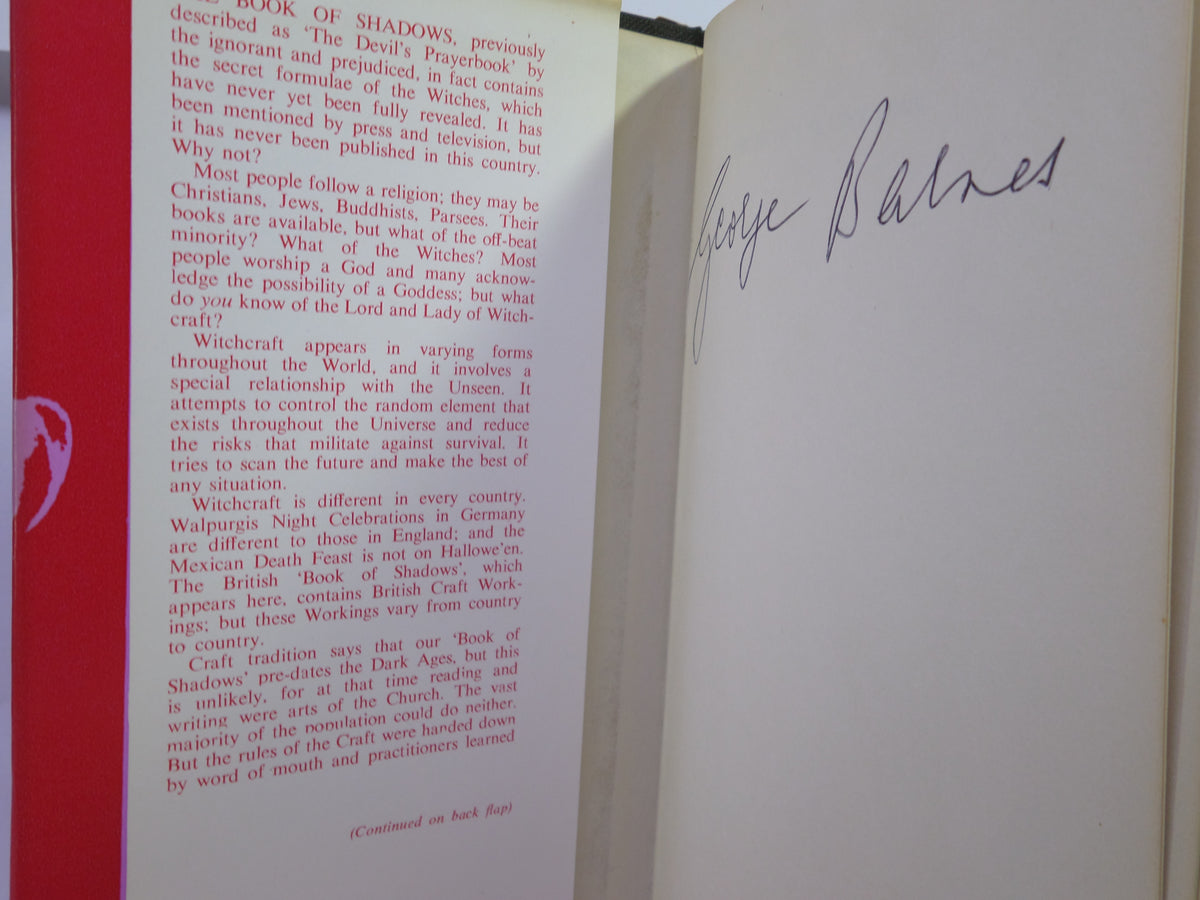 BOOK OF SHADOWS, previously
described as 'The Devil's Prayerbook' by
the ignorant and prejudiced, in fact contains
the secret formulae of the Witches, which
have never yet been fully revealed. It has
been mentioned by press and television, but
it has never been published in this country.
Why not?
Most people follow a religion; they may be
Christians, Jews, Buddhists, Parsees. Their
books are available, but what of the off-beat
minority? What of the Witches? Most
people worship a God and many acknow-
ledge the possibility of a Goddess; but what
do you know of the Lord and Lady of Witch-
craft?
Witchcraft appears in varying forms
throughout the World, and it involves a
special relationship with the Unseen. It
attempts to control the random element that
exists throughout the Universe and reduce
the risks that militate against survival. It
tries to scan the future and make the best of
any situation.
Witchcraft is different in every country.
Walpurgis Night Celebrations in Germany
are different to those in England; and the
Mexican Death Feast is not on Hallowe'en.
The British 'Book of Shadows', which
appears here, contains British Craft Work-
ings; but these Workings vary from country
to country.
Craft tradition says that our 'Book of
Shadows' pre-dates the Dark Ages, but this
is unlikely, for at that time reading and
writing were arts of the Church. The vast
majority of the population could do neither.
But the rules of the Craft were handed down
by word of mouth and practitioners learned
(Continued on back flap)
George Barnes